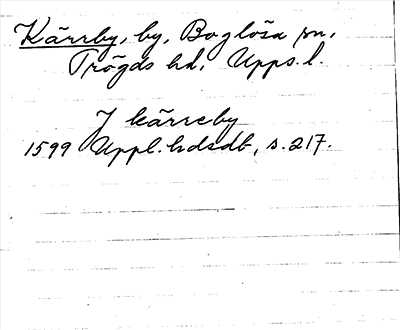 Kärrby, by, Boglösa sn,
Trögds hd, Upps. l.
J kärreby
1599 Uppl. hdsdb, s. 217.